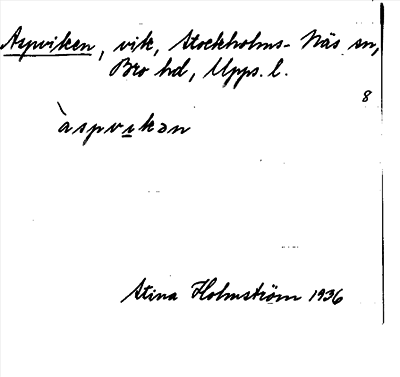 Aspviken, vik, Stockholms-Näs sn,
Bro hd, Upps. l.
8
`aspvikən
Stina Holmström 1936